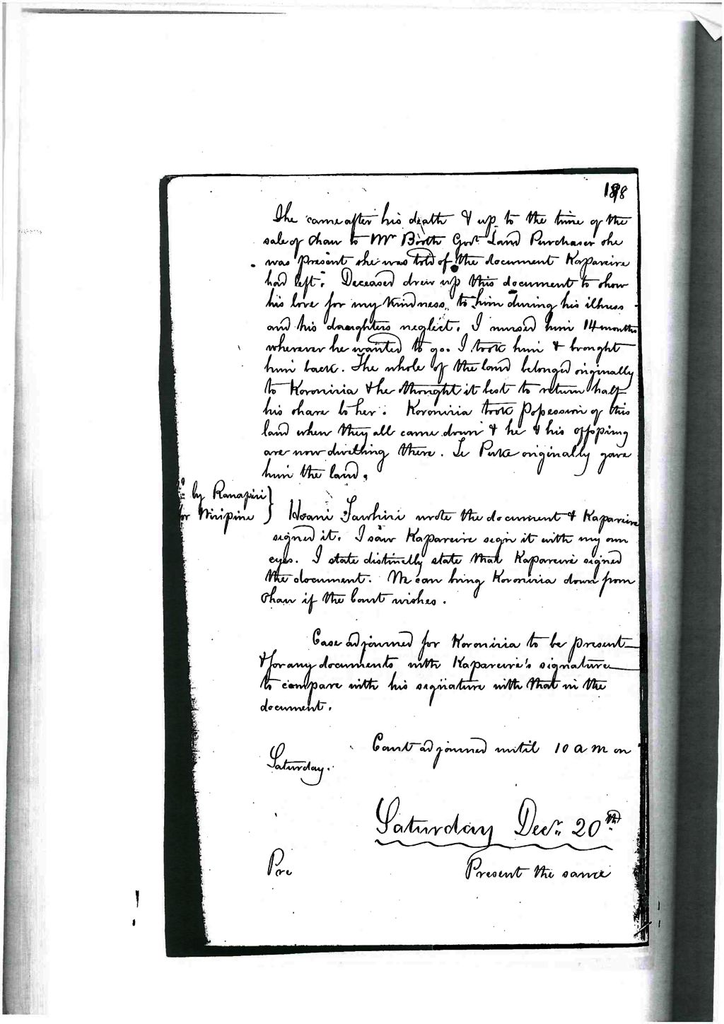 198
She came after his death & up to the time of the
sale of Ohau to Mr Booth Govt Land Purchaser she
was present she was told of the document Kapareire
had left. Deceased drew up this document to show
his love for my kindness to him during his illness
and his daughters neglect. I nursed him 14 months
wherever he wanted to go. I took him & brought
him back. The whole of the land belonged originally
to Koroniria & he thought it best to return half
his share to her. Koroniria took possession of this
land when they all came down & he & his offspring
are now dwelling there. Te Puke originally gave
him the land.
by Ranapiri
for Wiripine
Hoani Tawhiri wrote the document & Kapareire
signed it. I saw Kapareire sign it with my own
eyes. I state distinctly state that Kapareire signed
the document. We can bring Koroniria down from
Ohau if the Court wishes.
Case adjourned for Koroniria to be present
& for any documents with Kapareire's signature
to compare with his signature with that in the
document.
Court adjourned until 10 a m on
Saturday.
Saturday Decr. 20th
Pre Present the same